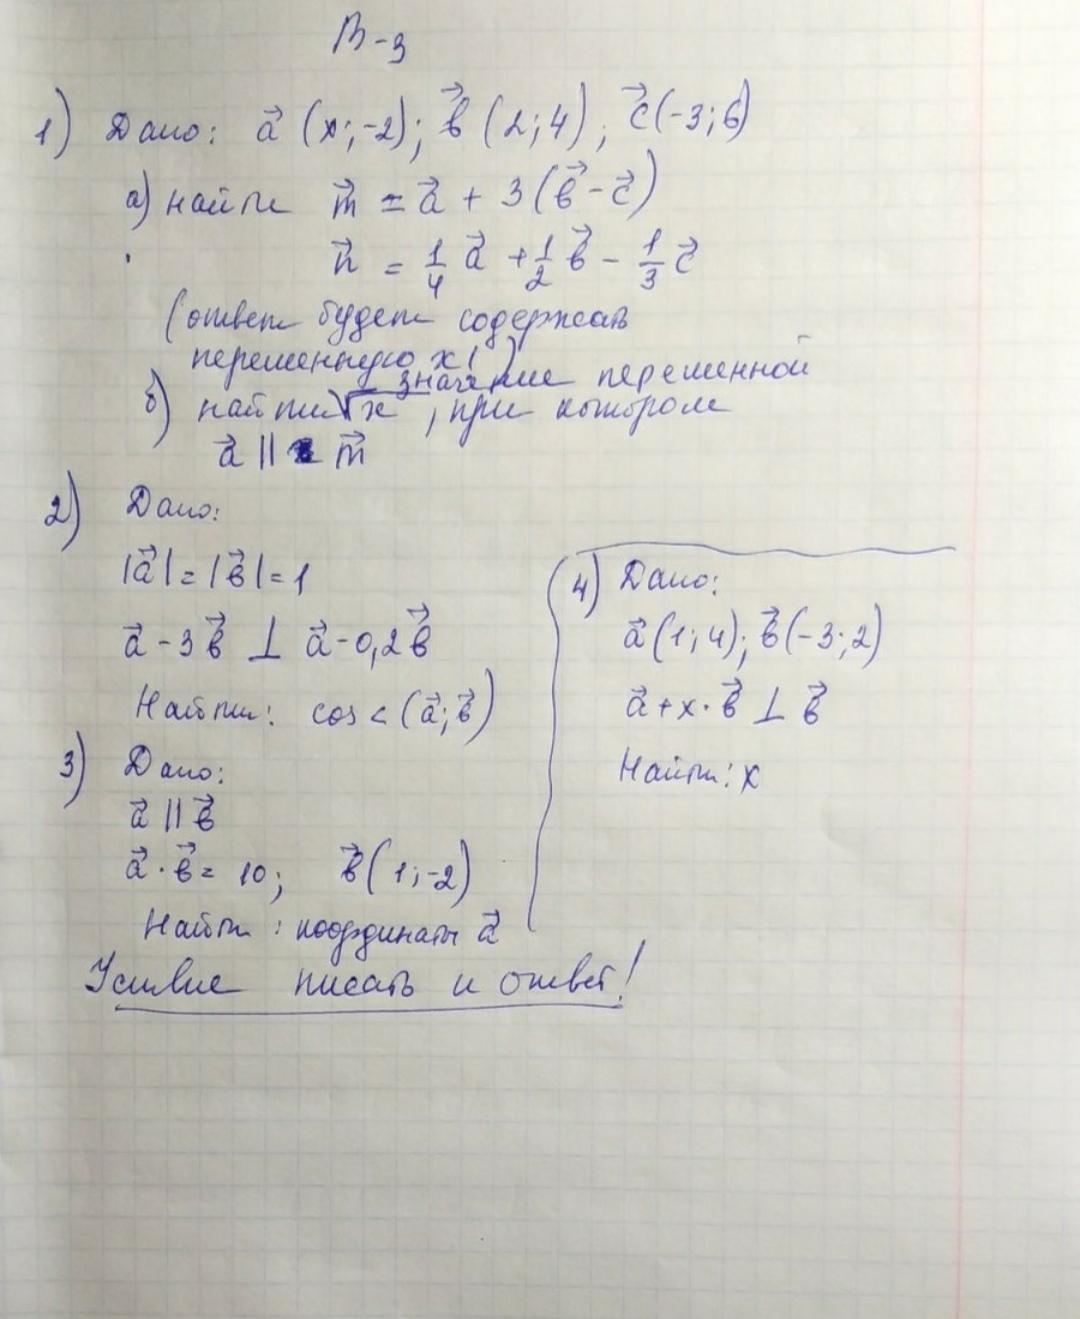 В-3
1) Дано: a⃗ (x; -2); b⃗ (2; 4), c⃗ (-3; 6)
а) найти m⃗ = a⃗ + 3(b⃗ - c⃗)
n⃗ = 1/4 a⃗ + 1/2 b⃗ - 1/3 c⃗
(ответ будет содержать
переменную x!)
значение переменной
б) найти √ x, при котором
a⃗ || m⃗
2) Дано:
|a⃗| = |b⃗| = 1
a⃗ - 3b⃗ ⊥ a⃗ - 0,2b⃗
Найти: cos < (a⃗; b⃗)
3) Дано:
a⃗ || b⃗
a⃗ · b⃗ = 10; b⃗ (1; -2)
Найти: координаты a⃗
4) Дано:
a⃗ (1; 4); b⃗ (-3; 2)
a⃗ + x · b⃗ ⊥ b⃗
Найти: x
писать и ответ!